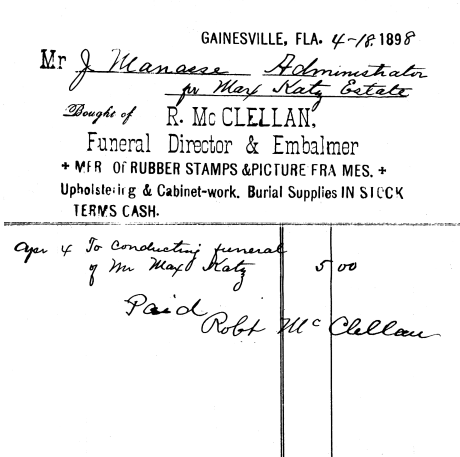 GAINESVILLE, FLA. 4-18. 1898
Mr J Manasse Administrator
for Max Katz Estate
Bought of R. Mc CLELLAN,
Funeral Director & Embalmer
+ MFR OF RUBBER STAMPS & PICTURE FRAMES. +
Upholstering & Cabinet-work. Burial Supplies IN STOCK
TERMS CASH.
Apr 4 To conducting funeral
of Mr Max Katz 5 00
Paid
Robt McClellan